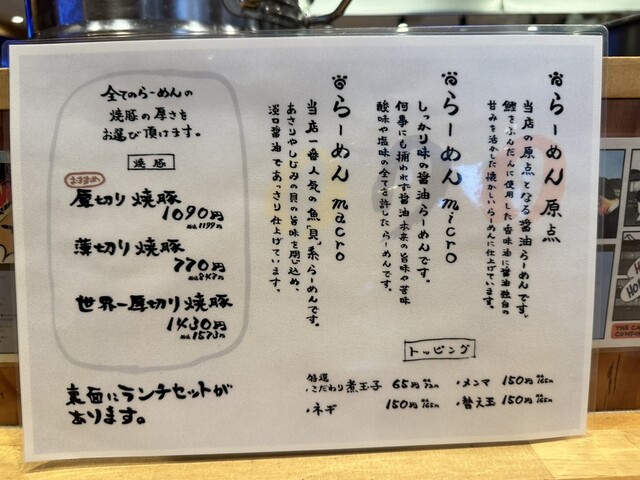 らーめん 原点
当店の原点となる醤油らーめんです。
鰹をふんだんに使用した香味油に醤油独自の
甘みを活かした懐かしいらーめんに仕上げています。
らーめん micro
しっかり味の醤油らーめんです。
何事にも捕われず醤油本来の旨味や苦味
酸味や塩味の全てを許したらーめんです。
らーめん macro
当店一番人気の魚「貝」系らーめんです。
あさりやしじみの貝の旨味を閉じ込め、
淡口醤油であっさり仕上げています。
全てのらーめんの
焼豚の厚さを
お選び頂けます。
焼豚
おすすめ
厚切り焼豚
1090円
税込1199円
薄切り焼豚
770円
税込847円
世界一厚切り焼豚
1430円
税込1573円
裏面にランチセットが
あります。
トッピング
特選
・こだわり煮玉子 65円 税込72円
・メンマ 150円 税込165円
・ネギ 150円 税込165円
・替え玉 150円 税込165円